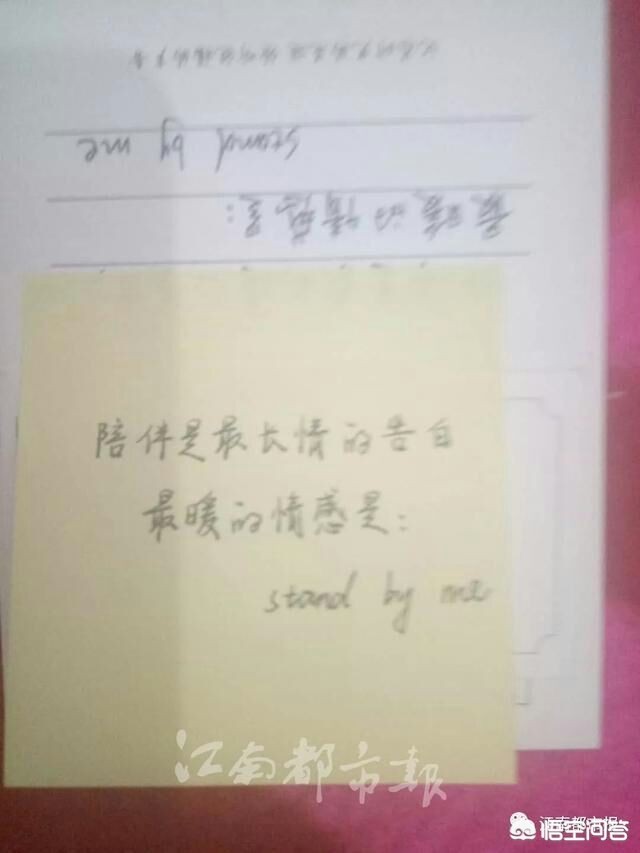 stand by me
最暖的情感是:
陪伴是最长情的告白
最暖的情感是:
stand by me
江南都市报
江南都市报
悟空问答